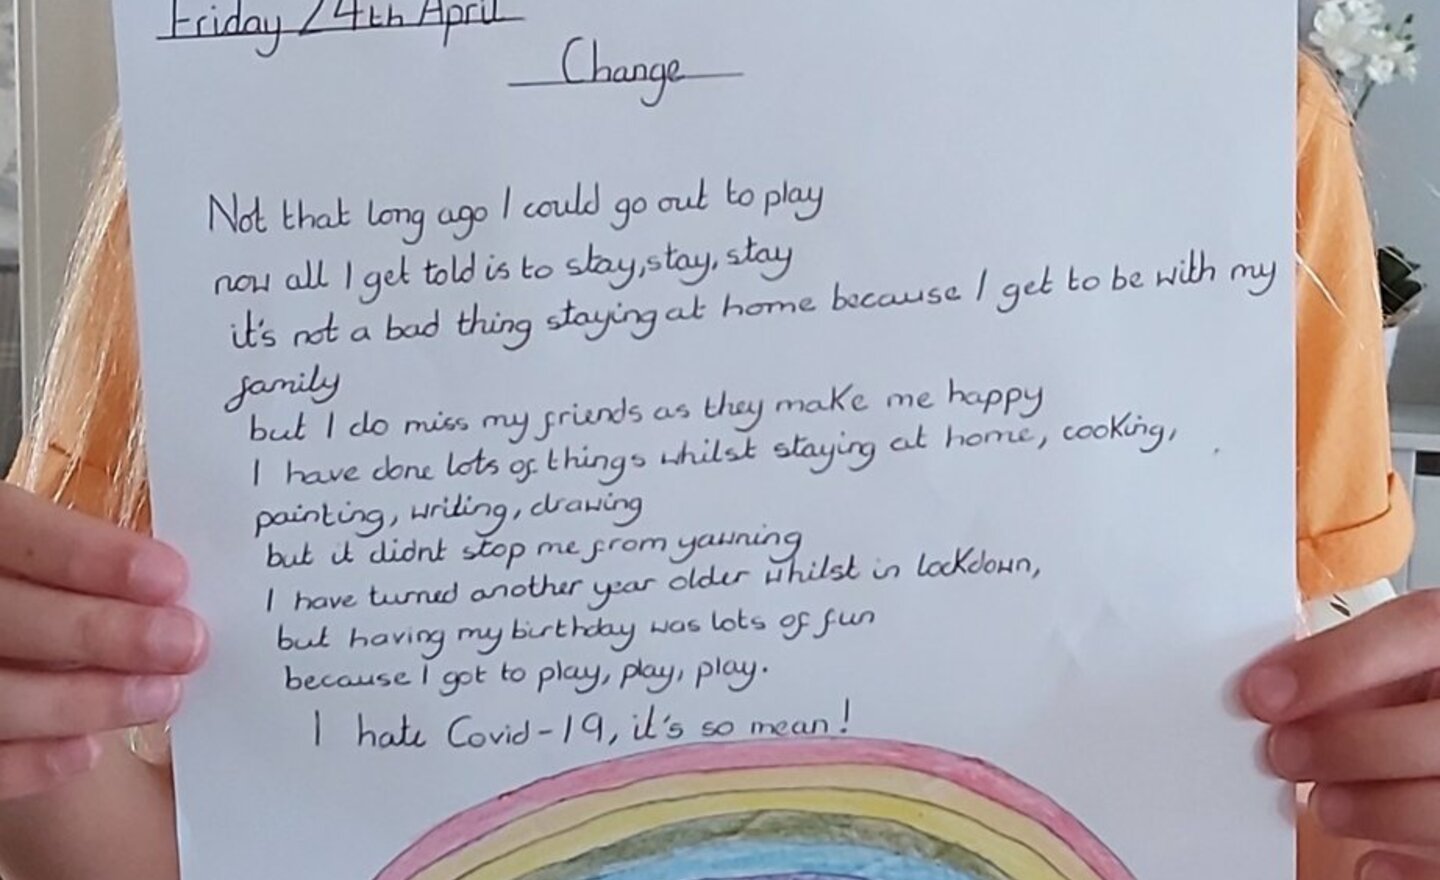 Friday 24th April
Change
Not that long ago I could go out to play
now all I get told is to stay, stay, stay
it's not a bad thing staying at home because I get to be with my
family
but I do miss my friends as they make me happy
I have done lots of things whilst staying at home, cooking,
painting, writing, drawing
but it didnt stop me from yawning
I have turned another year older whilst in lockdown,
but having my birthday was lots of fun
because I got to play, play, play.
I hate Covid-19, it's so mean!